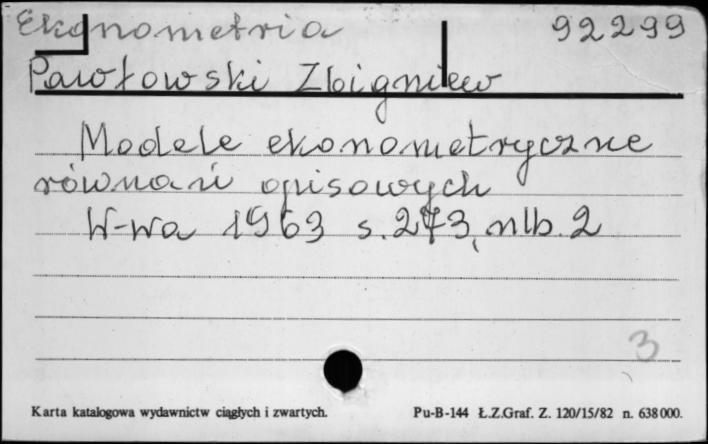 Ekonometria 92299
Pawłowski Zbigniew
Modele ekonometryczne
równań opisowych
W-wa 1963 s. 273, nlb. 2
3
Karta katalogowa wydawnictw ciągłych i zwartych. Pu-B-144 Ł.Z.Graf. Z. 120/15/82 n. 638000.